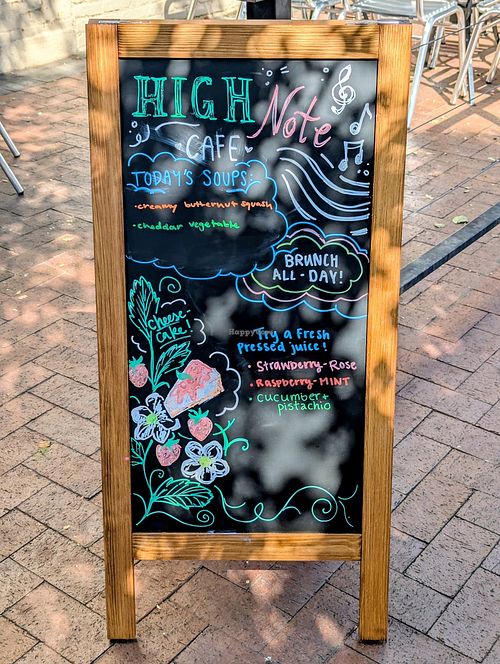 HIGH
Note
CAFE
TODAY'S SOUPS:
•creamy butternut squash
•cheddar vegetable
BRUNCH
ALL-DAY!
cheese
cake!
Try a Fresh
Pressed juice!
• Strawberry-Rose
• Raspberry-MINT
• Cucumber+
pistachio
HappyCow